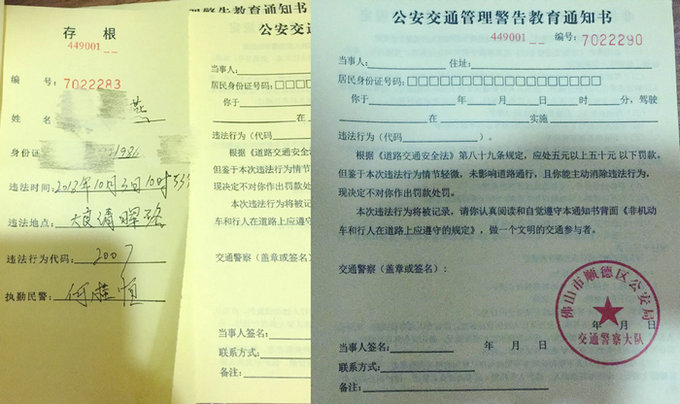 存根
449001
编号：7022283
姓名 燕
身份证 1986
违法时间：2018年10月3日10时55分
违法地点：大良清晖路
违法行为代码：2007
执勤民警：何桂恒
理警告教育通知书
公安交通管
449001
当事人：
居民身份证号码：
你于
在
违法行为（代码
根据《道路交通安
但鉴于本次违法行为情节
现决定不对你作出罚款处
本次违法行为将被记
车和行人在道路上应遵守
交通警察（盖章或签名）
当事人签名：
联系方式：
备注：
公安交通管理警告教育通知书
449001 编号：7022290
当事人： 住址：
居民身份证号码：□□□□□□□□□□□□□□□□□□
你于 年 月 日 时 分，驾驶
在 实施
违法行为（代码 ）。
根据《道路交通安全法》第八十九条规定，应处五元以上五十元以下罚款。
但鉴于本次违法行为情节轻微，未影响道路通行，且你能主动消除违法行为，
现决定不对你作出罚款处罚。
本次违法行为将被记录，请你认真阅读和自觉遵守本通知书背面《非机动
车和行人在道路上应遵守的规定》，做一个文明的交通参与者。
交通警察（盖章或签名）：
佛山市顺德区公安局
年 月 日
交通警察大队
当事人签名： 年 月 日
联系方式：
备注：